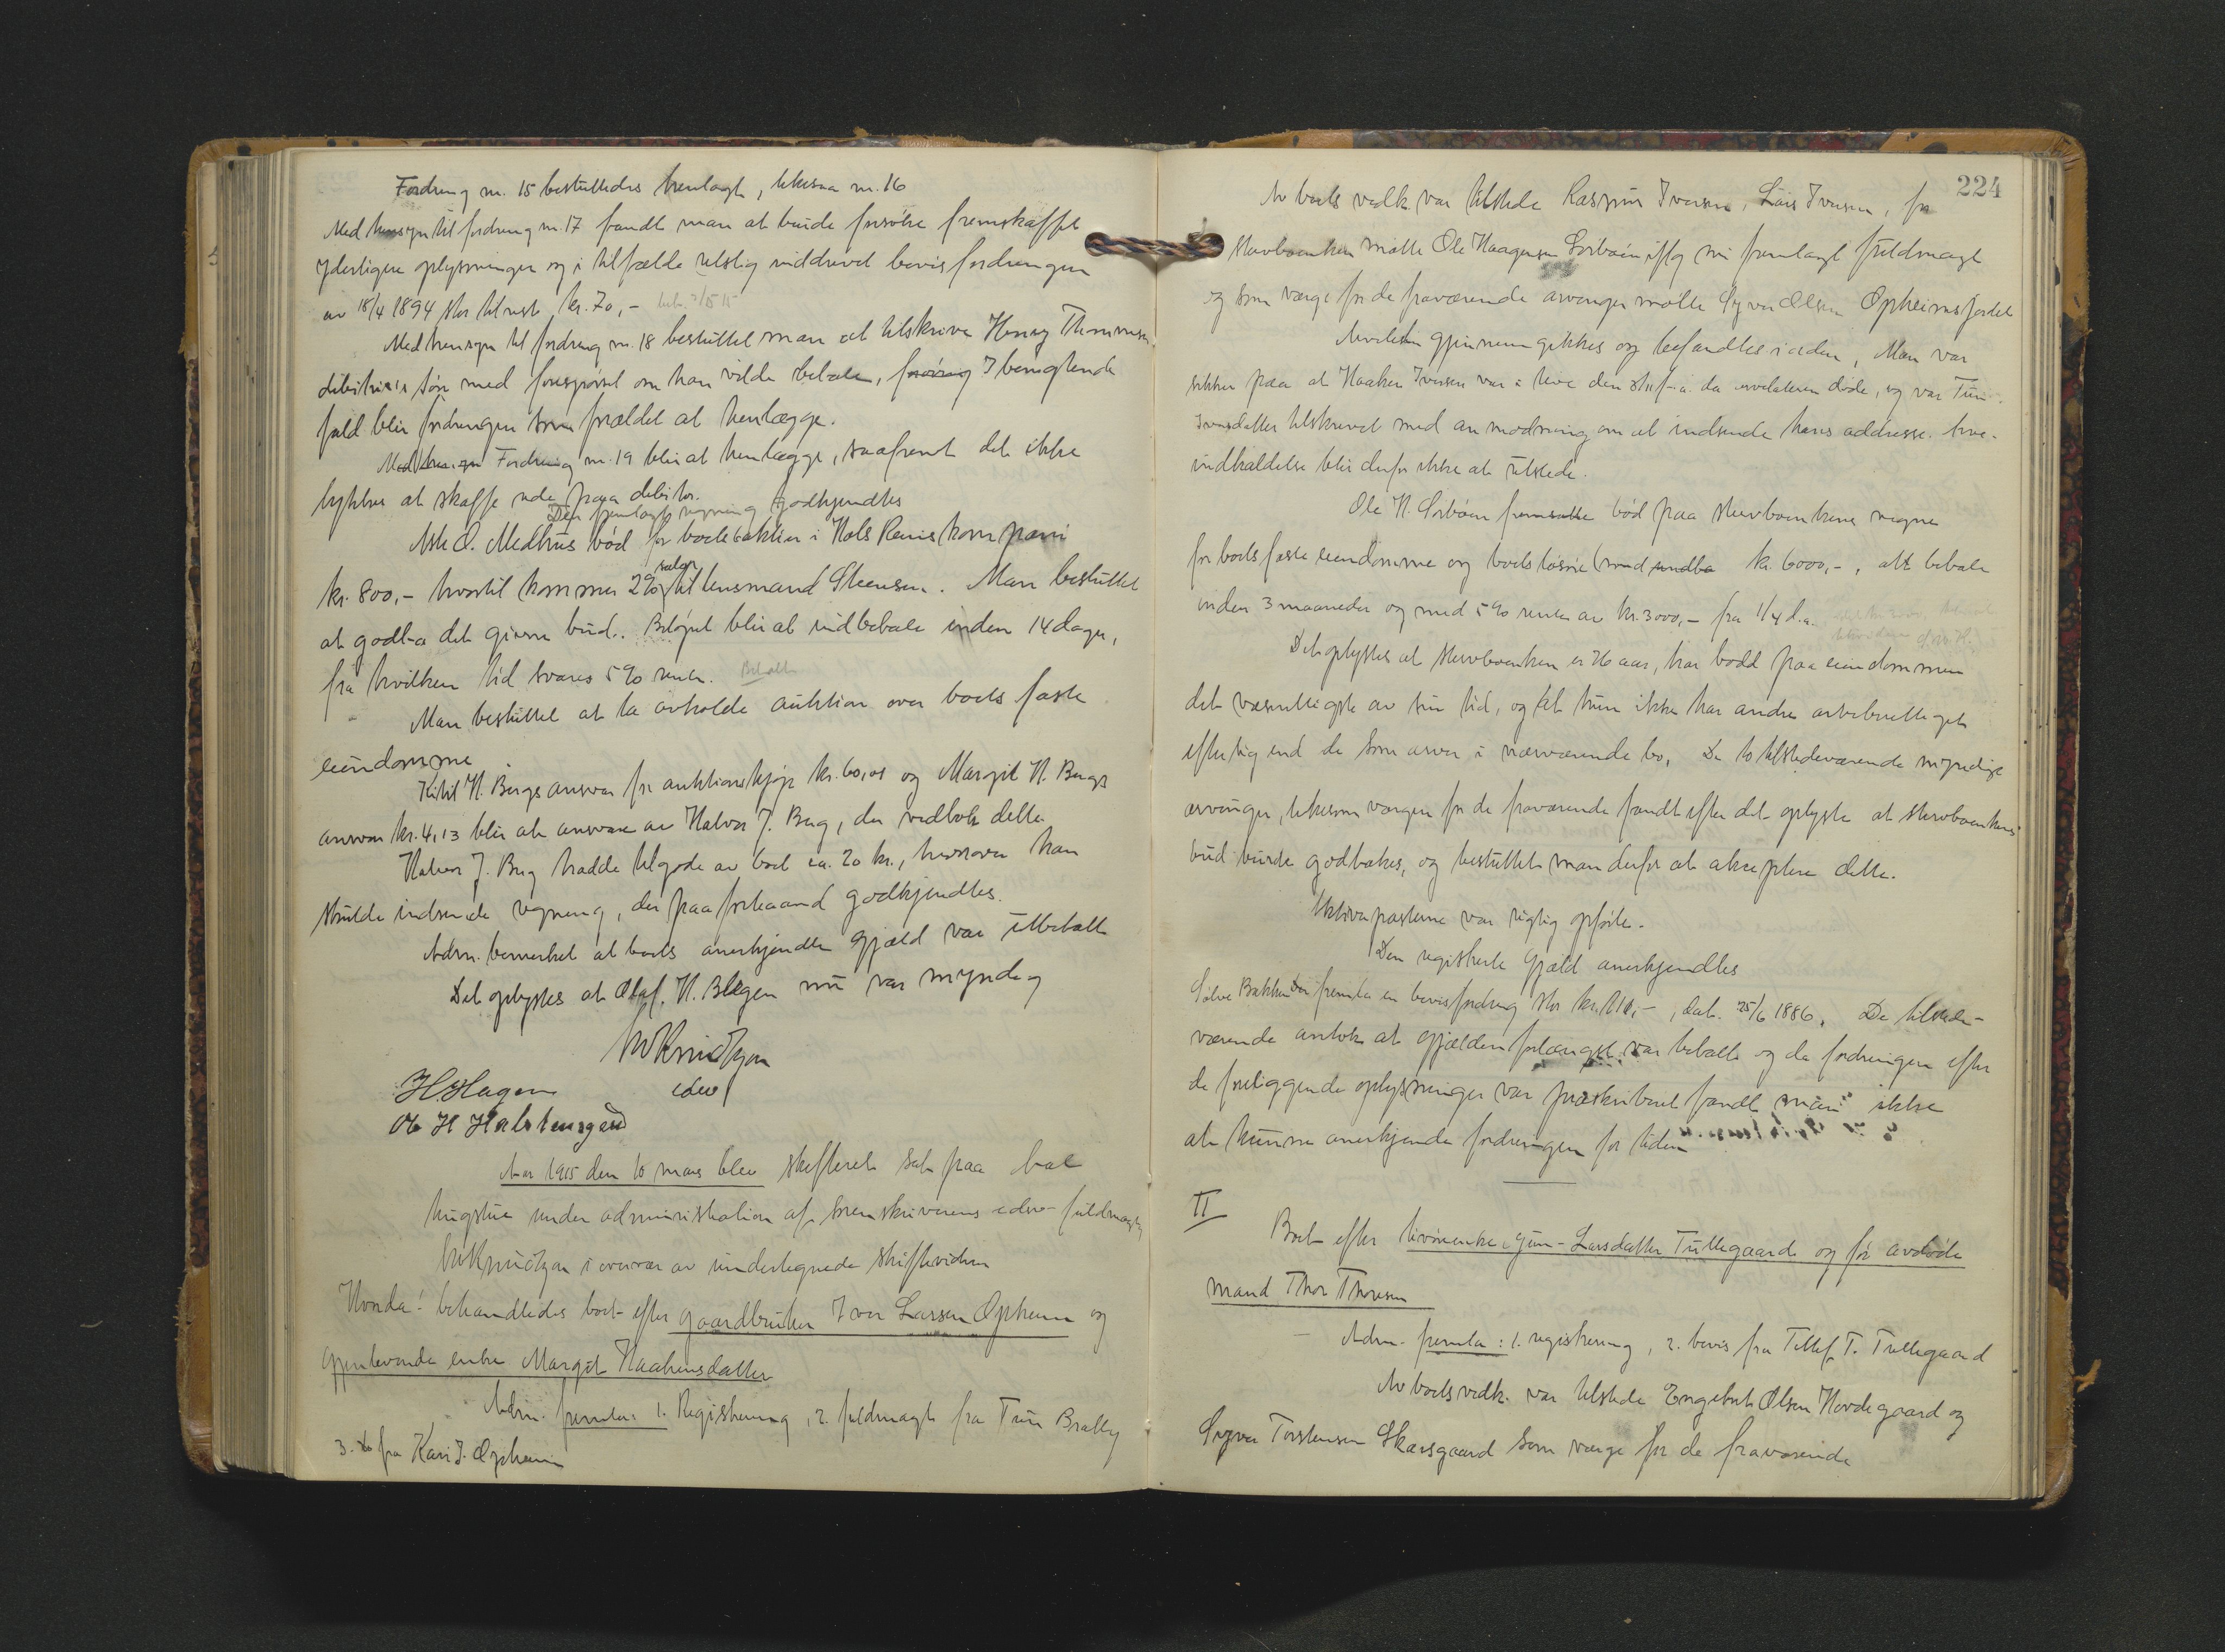 Fordring nr. 15 besluttedes henlagt, likesaa nr. 16
Med hensyn til fordring nr. 17 fandt man at burde forsøke fremskaffet
yderligere oplysninger og i tilfælde retslig inddrevet bevisfordringen
av 18/4 1894 stor til rest kr. 70,-
Med hensyn til fordring nr. 18 besluttet man at tilskrive Henry Thommesen
debitors søn med forespørsel om han vilde betale, I benegtende
fald blir fordringen som forældet at henlægge.
Fordring nr. 19 blir at henlægge, saafremt det ikke
lykkes at skaffe rede paa debitor.
Den fremlagte regning godkjendtes
Asle O. Medhus bød for boets aktier i Hols Renskompani
kr. 800,- hvortil kommer 2% salær til lensmand Steensen. Man besluttet
at godta det givne bud. Beløpet blir at indbetale inden 14 dager,
fra hvilken tid svares 5% rente. Betalt
Man besluttet at la avholde auktion over boets faste
eiendomme
Kittil H. Bergs ansvar for auktionskjøp kr. 60,01 og Margit H. Bergs
ansvar kr. 4,13 blir at ansvare av Halvor J. Berg, der vedtok dette.
Halvor J. Berg hadde tilgode av boet ca. 20 kr., hvorover han
skulde indsende regning, der paa forhaand godkjendtes.
Adm. bemerket at boets anerkjendte gjæld var utbetalt
Det oplystes at Olaf H. Bergen nu var myndig
NKnudtzon
edsv
H. Hagen
Ole H Halstensgård
Aar 1915 den 10 mars blev skifteret sat paa hol
tingstue under administration af sorenskriverens edsv. fuldmægtig
NKnudtzon i overvær av undertegnede skiftevidner
Hvorda: behandledes boet efter gaardbruker Iver Larsen Opheim og
gjenlevende enke Margit Haakensdatter
Adm. fremla: 1. Registrering, 2. fuldmagt fra Turi Bratly
3. do fra Kari I. Opheim
224
Av boets vedk. var tilstede Rasmus Iversen, Lars Iversen, for
stervboenken møtte Ole Haagensen Sorbøen iflg nu fremlagt fuldmagt
og som verge for de fraværende arvinger møtte Syver Olsen Opheimsjordet
Arvelisten gjennemgikkes og befandtes i orden, Man var
sikker paa at Haaken Iversen var i live den f.a. da arveladeren døde, og var Turi
Iversdatter tilskrevet med anmodning om at indsende hans addresse. Arve-
indkaldelse blir derfor ikke at utstede.
Ole H. Sorbøen bød paa stervboenkens vegne
for boets faste eiendomme og boets løsøre kr. 6000,-, alt betale
inden 3 maaneder og med 5% rente av kr. 3000,- fra 1/4 d.a.
Det oplystes at stervboenken er 76 aar, har bodd paa eiendommen
det væsentligste av sin tid, og at hun ikke har andre arveberettiget
efter sig end de som arver i nærværende bo. De to tilstedeværende myndige
arvinger, likesom vergen for de fraværende fandt efter det oplyste at stervboenkens
bud burde godtakes, og besluttet man derfor at akseptere dette.
Aktivaposterne var rigtig opført.
Den registrerte gjæld anerkjendtes
Sølve Bakken fremla en bevisfordring stor kr. ,-, dat. 25/6 1886. De tilstede-
værende antok at gjælden forlængst var betalt og da fordringen efter
de foreliggende oplysninger var præskribert fandt man ikke
at kunne anerkjende fordringen for tiden
II
Boet efter livørenke Gun- Larsdatter Tullegaard og før avdøde
mand Thor Thoresen
Adm. fremla: 1. registrering, 2. bevis fra Tollef T. Tullegaard
Av boets vedk. var tilstede Engebret Olsen Hovdegaard og
Syver Torstensen Skarsgaard som verge for de fraværende